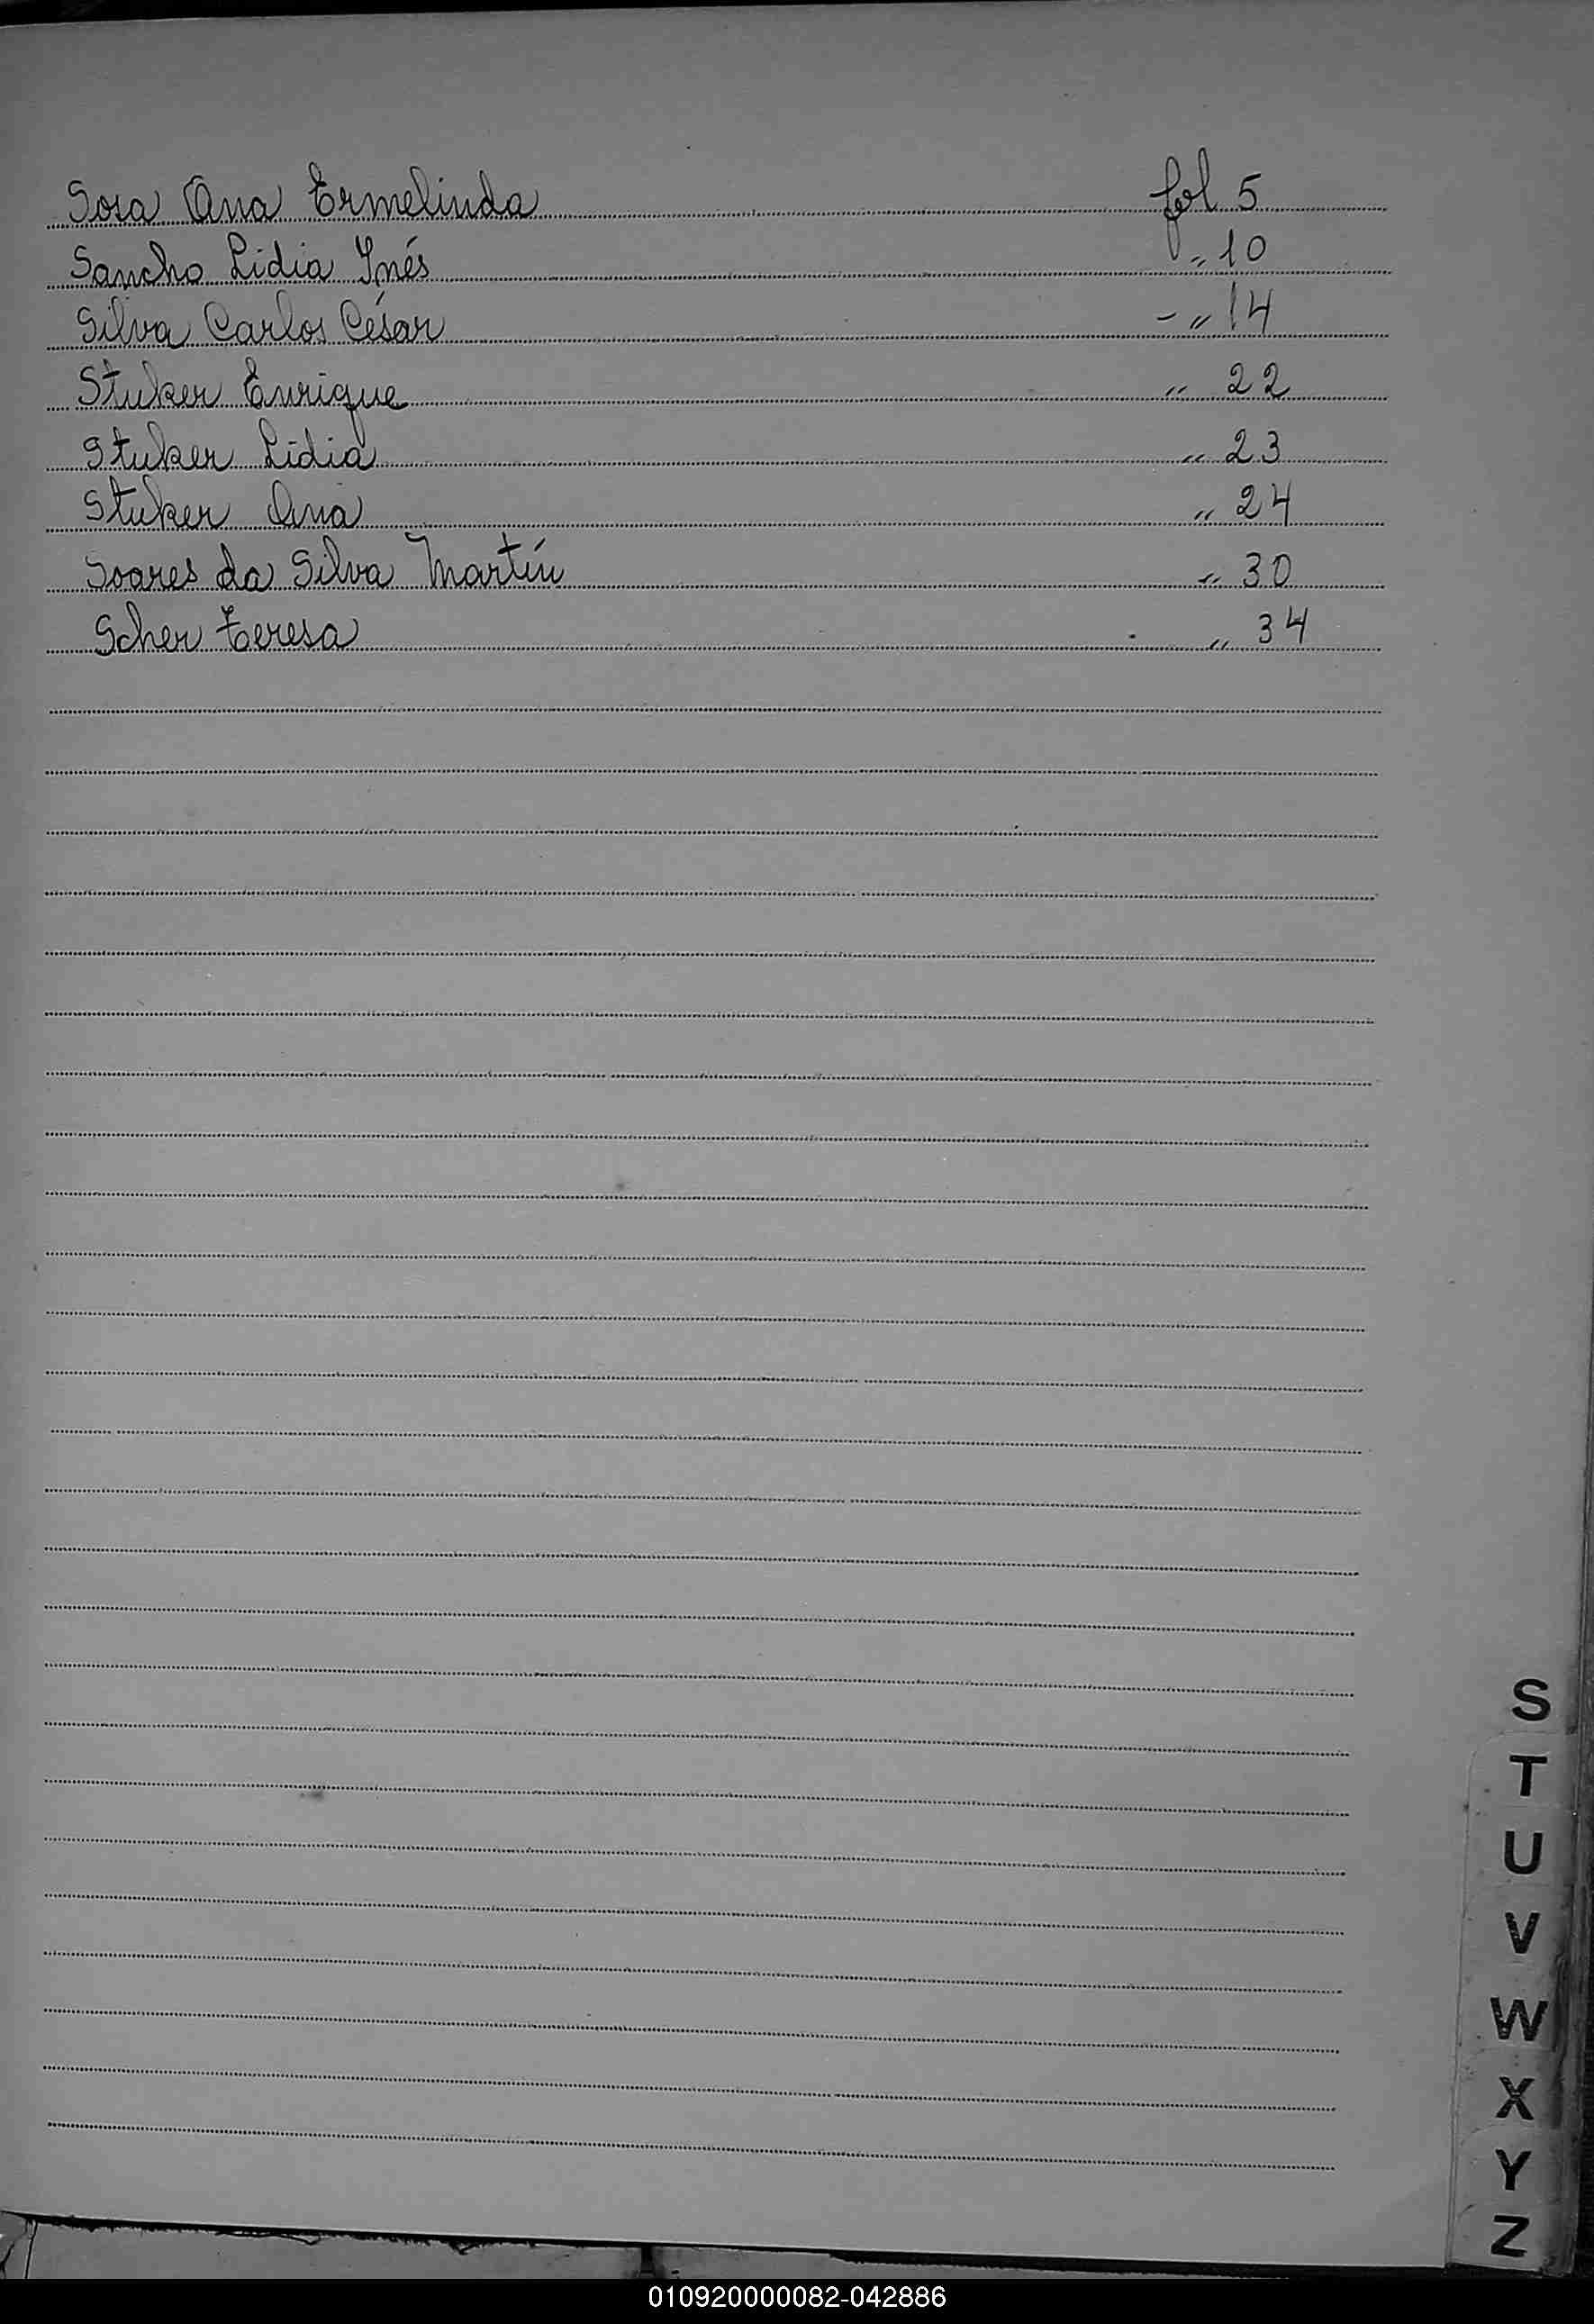 Sosa Ana Ermelinda fol 5
Sancho Lidia Inés " 10
Silva Carlos César - " 14
Stuker Enrique " 22
Stuker Lidia " 23
Stuker Ana " 24
Soares da Silva Martín " 30
Scher Teresa " 34
S
T
U
V
W
X
Y
Z
010920000082-042886